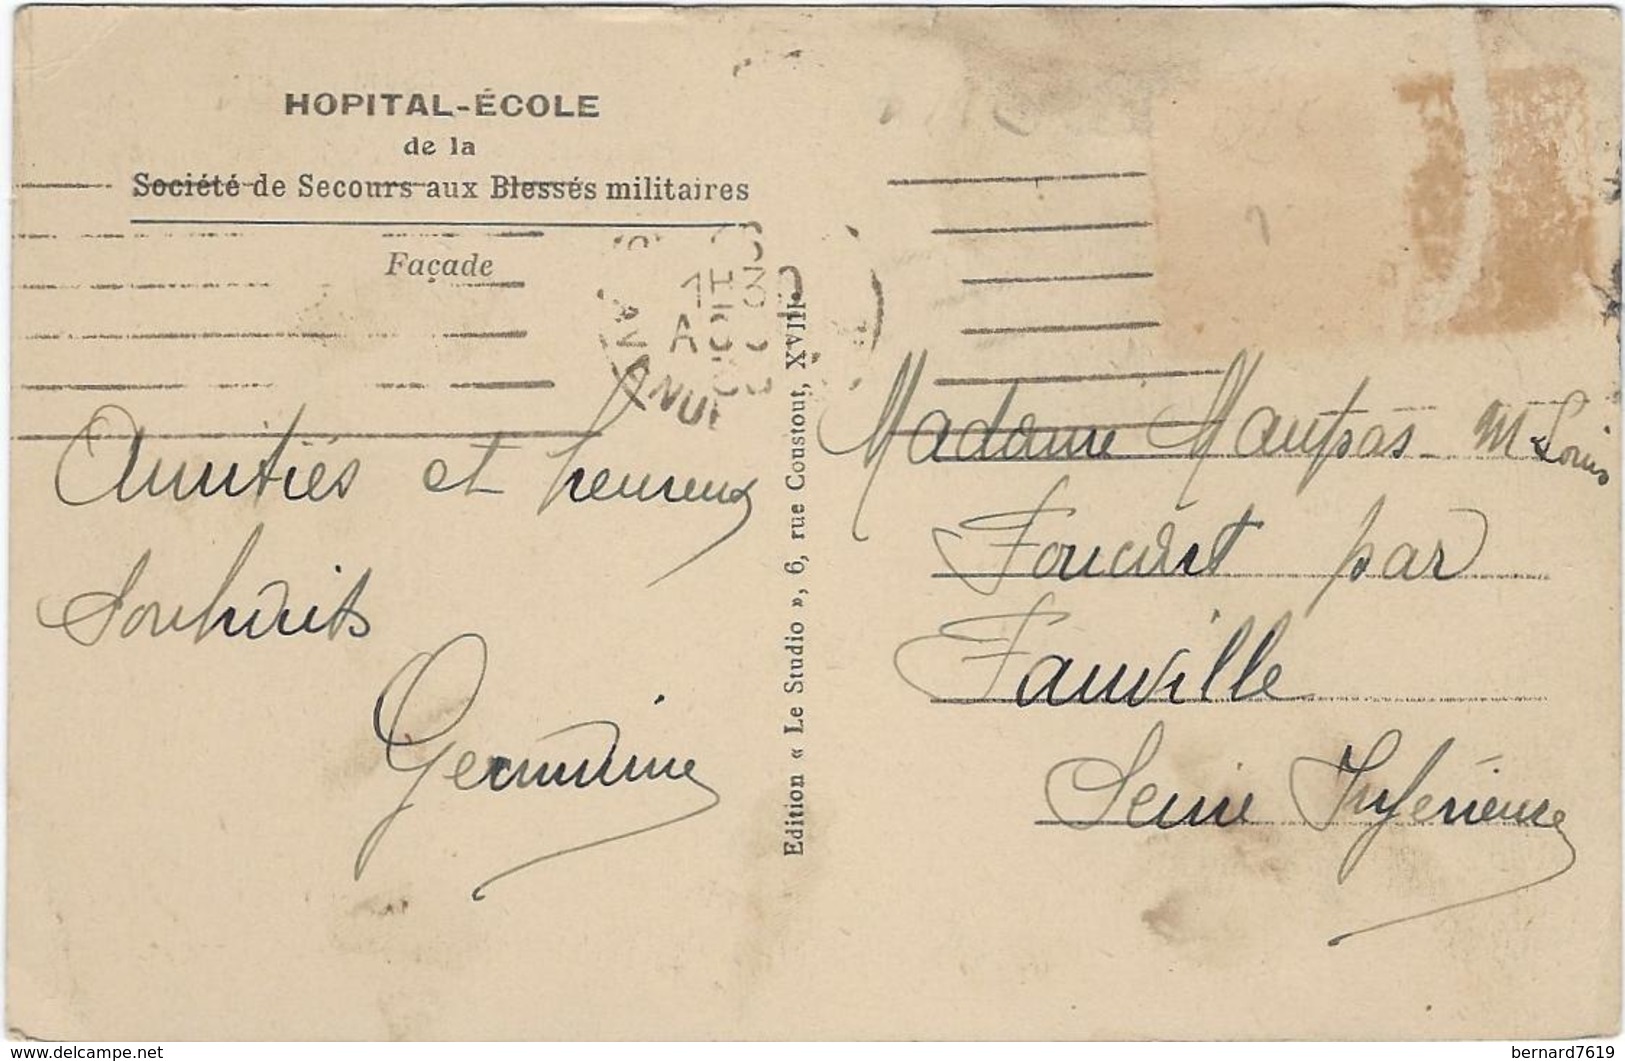 HOPITAL-ÉCOLE
de la
Société de Secours aux Blessés militaires
Façade
1H30
AOU
Amitiés et heureux
Souhaits
Germaine
Edition « Le Studio », 6, rue Coustout, XVIII.
Madame Maupas - M Louis
Foucart par
Fauville
Seine Inférieure
www.delcampe.net
bernard7619